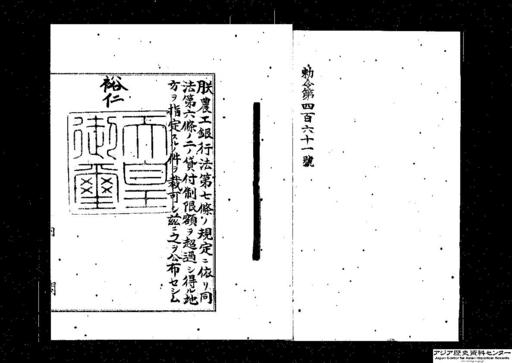 勅令第四百六十一號
朕農工銀行法第七條ノ規定ニ依リ同
法第六條ノ二ノ貸付制限額ヲ超過シ得ル地
方ヲ指定スルノ件ヲ裁可シ茲ニ之ヲ公布セシム
裕仁
天皇
御璽
内閣
アジア歴史資料センター
Japan Center for Asian Historical Records